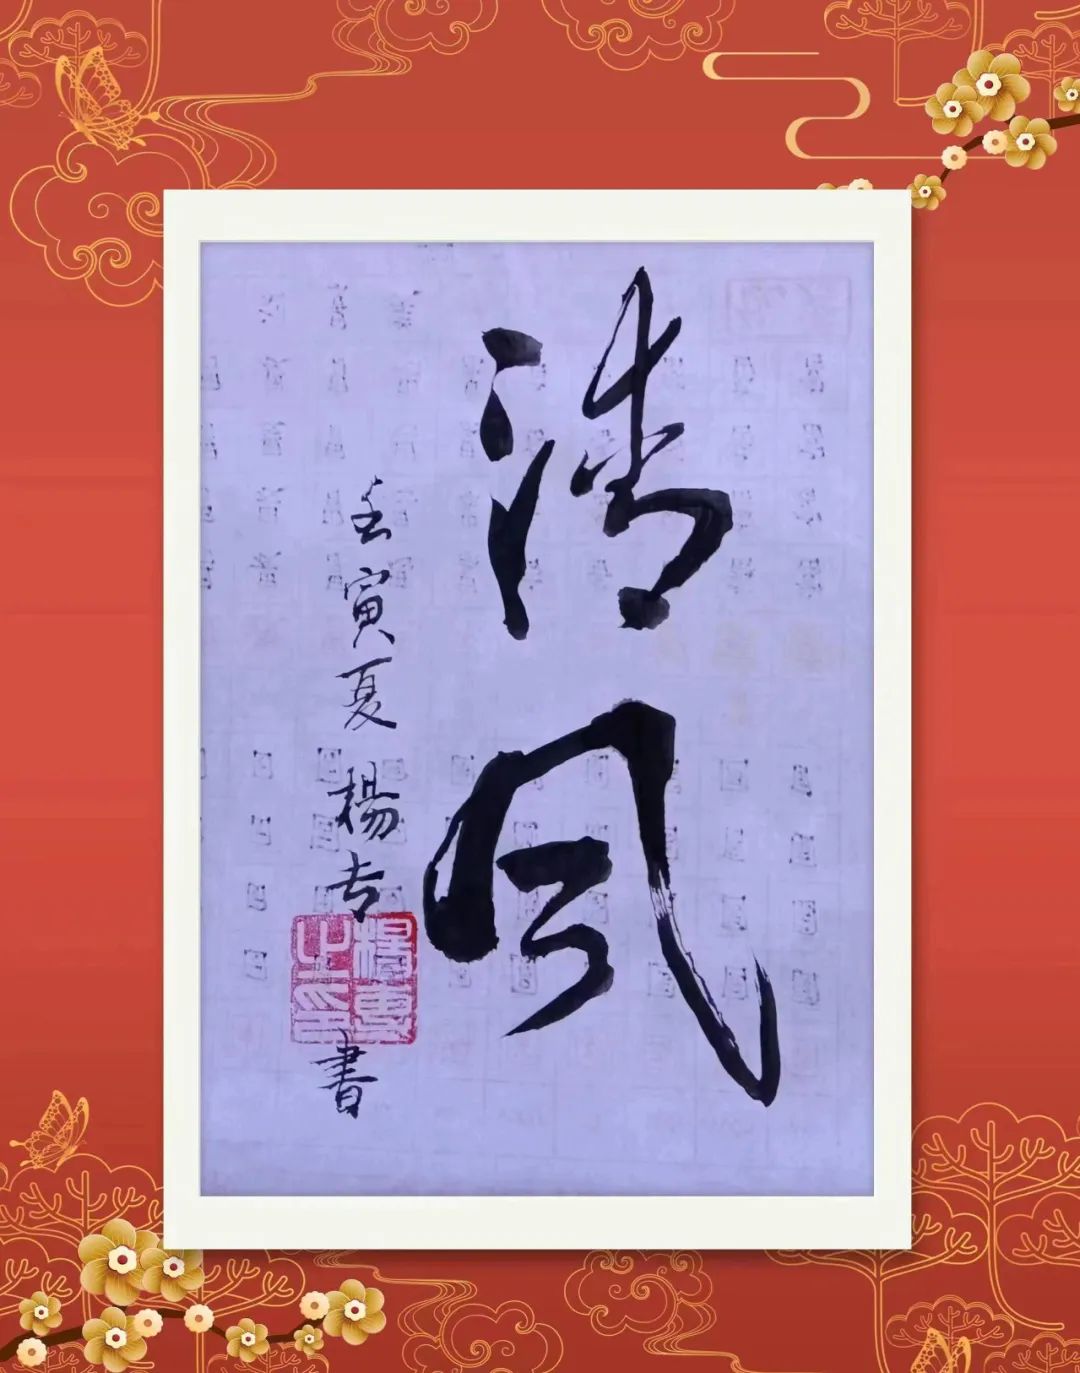 清风
壬寅夏楊专書
楊專之印